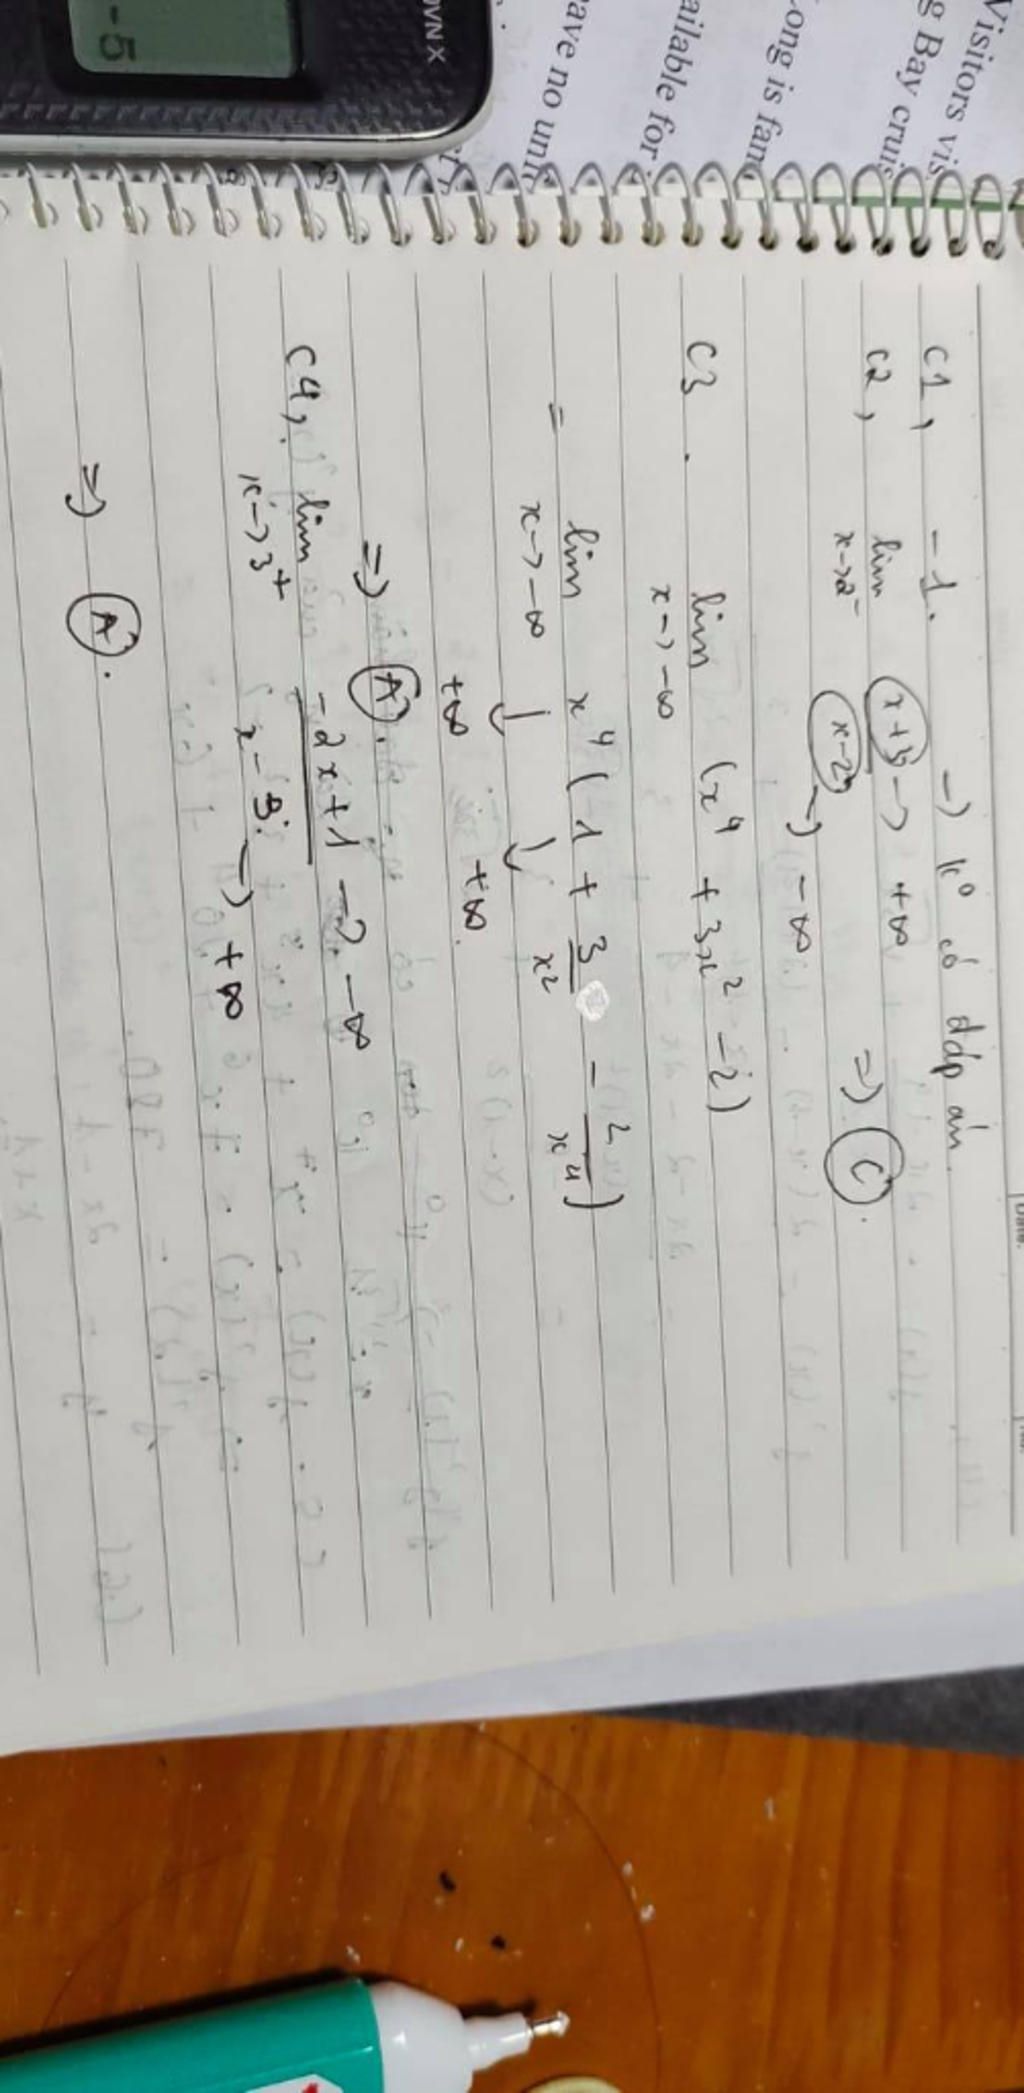 Visitors vis
g Bay cruis
ong is fam
ailable for
ave no unit
OVN X
-5
Date.
C1, -1. → k° có đáp án.
C2, lim x+3 → +∞
x→2⁻ x-2 → -∞ ⇒ C.
C3. lim (x⁴ + 3x² - 2)
x→-∞
= lim x⁴ (1 + 3/x² - 2/x⁴)
x→-∞ ↓ ↓
+∞ +∞
⇒ A.
C4, lim -2x+1 → -∞
x→3⁺ x-3 → +∞
⇒ A.